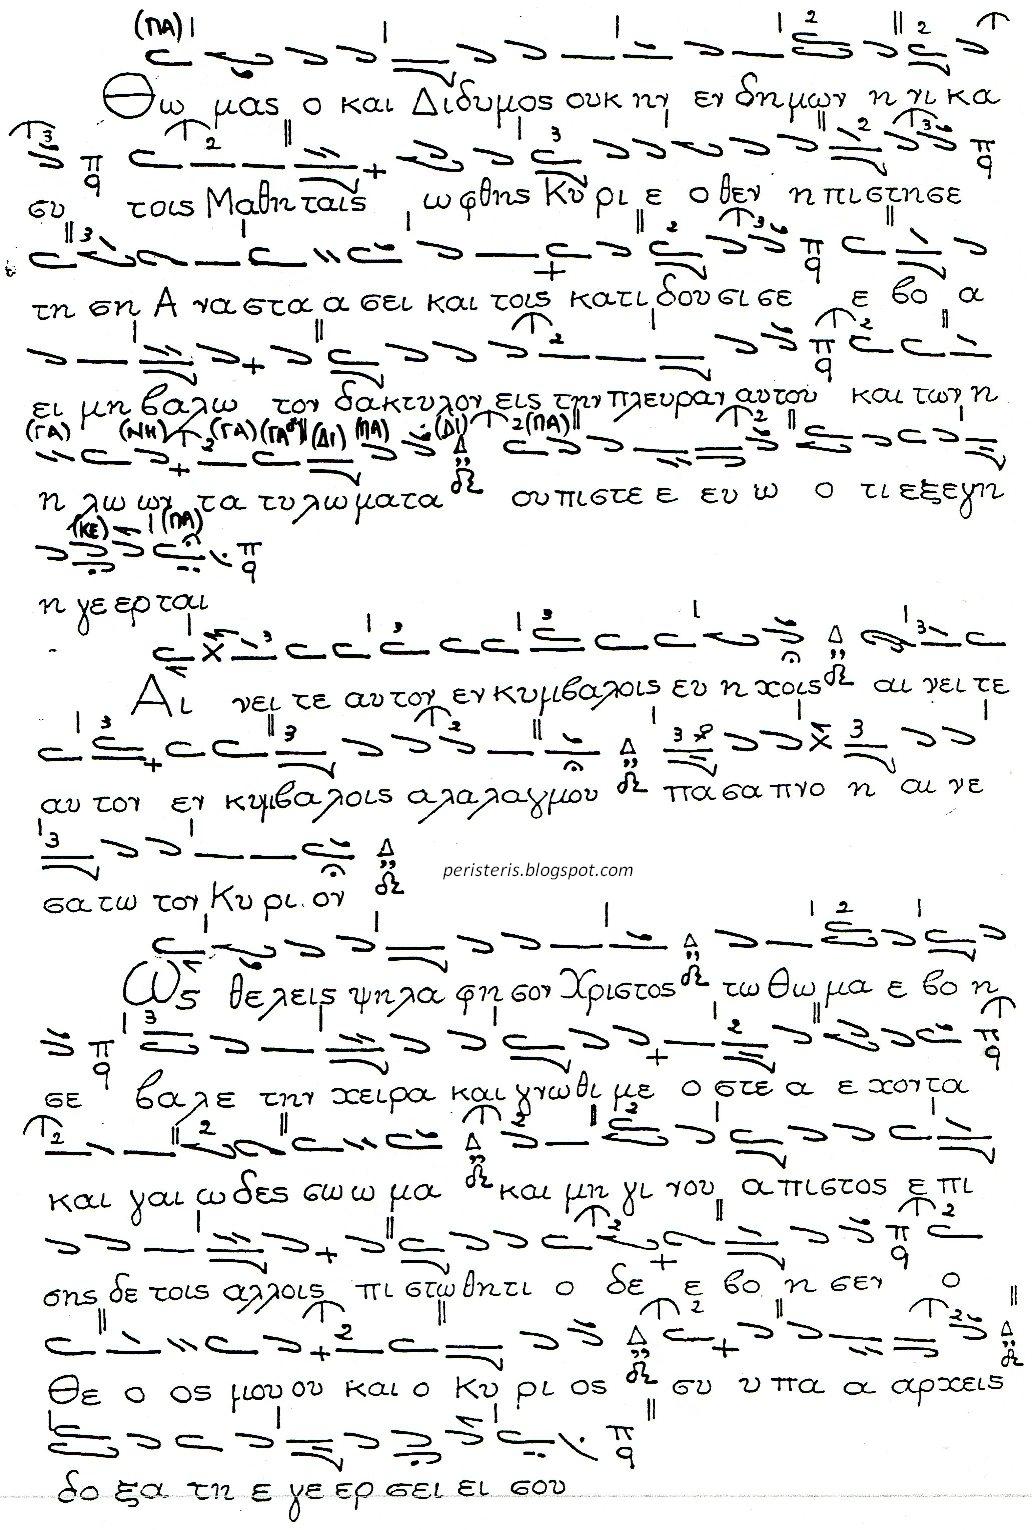 (ΠΑ)
Θω μας ο και Διδυμος ουκ ην εν δημων η νι κα
συ τοις Μαθη ταις ωφθης Κυ ρι ε ο θεν η πιστησε
τη ση Α ναστα α σει και τοις κατι δουσι σε ε βο α
ει μη βαλω τον δακτυλον εις την πλευραν αυτου και των η
(ΓΑ) (ΝΗ) (ΓΑ) (ΓΑ) (ΔΙ) (ΠΑ) (ΔΙ) (ΠΑ)
η λω ων τα τυ λωματα ου πιστε ε ευ ω ο τι εξεγη
(ΚΕ) (ΠΑ)
η γε ερται
Αι νει τε αυτον εν κυμβαλοις ευ η χοις αι νει τε
αυ τον εν κυμβαλοις αλαλαγμου πασα πνο η αι νε
σα τω τον Κυ ρι ον
peristeris.blogspot.com
Ως θελεις ψηλα φησον Χριστος τω Θω μα ε βο η
σε βαλε την χειρα και γνωθι με ο στε α ε χοντα
και γαι ω δες σω ω μα και μη γι νου απιστος ε πι
σης δε τοις αλλοις πι στωθητι ο δε ε βο η σεν ο
Θε ο ος μου ου και ο Κυ ρι ος συ υ πα α αρχεις
δο ξα τη ε γε ερ σει ει σου